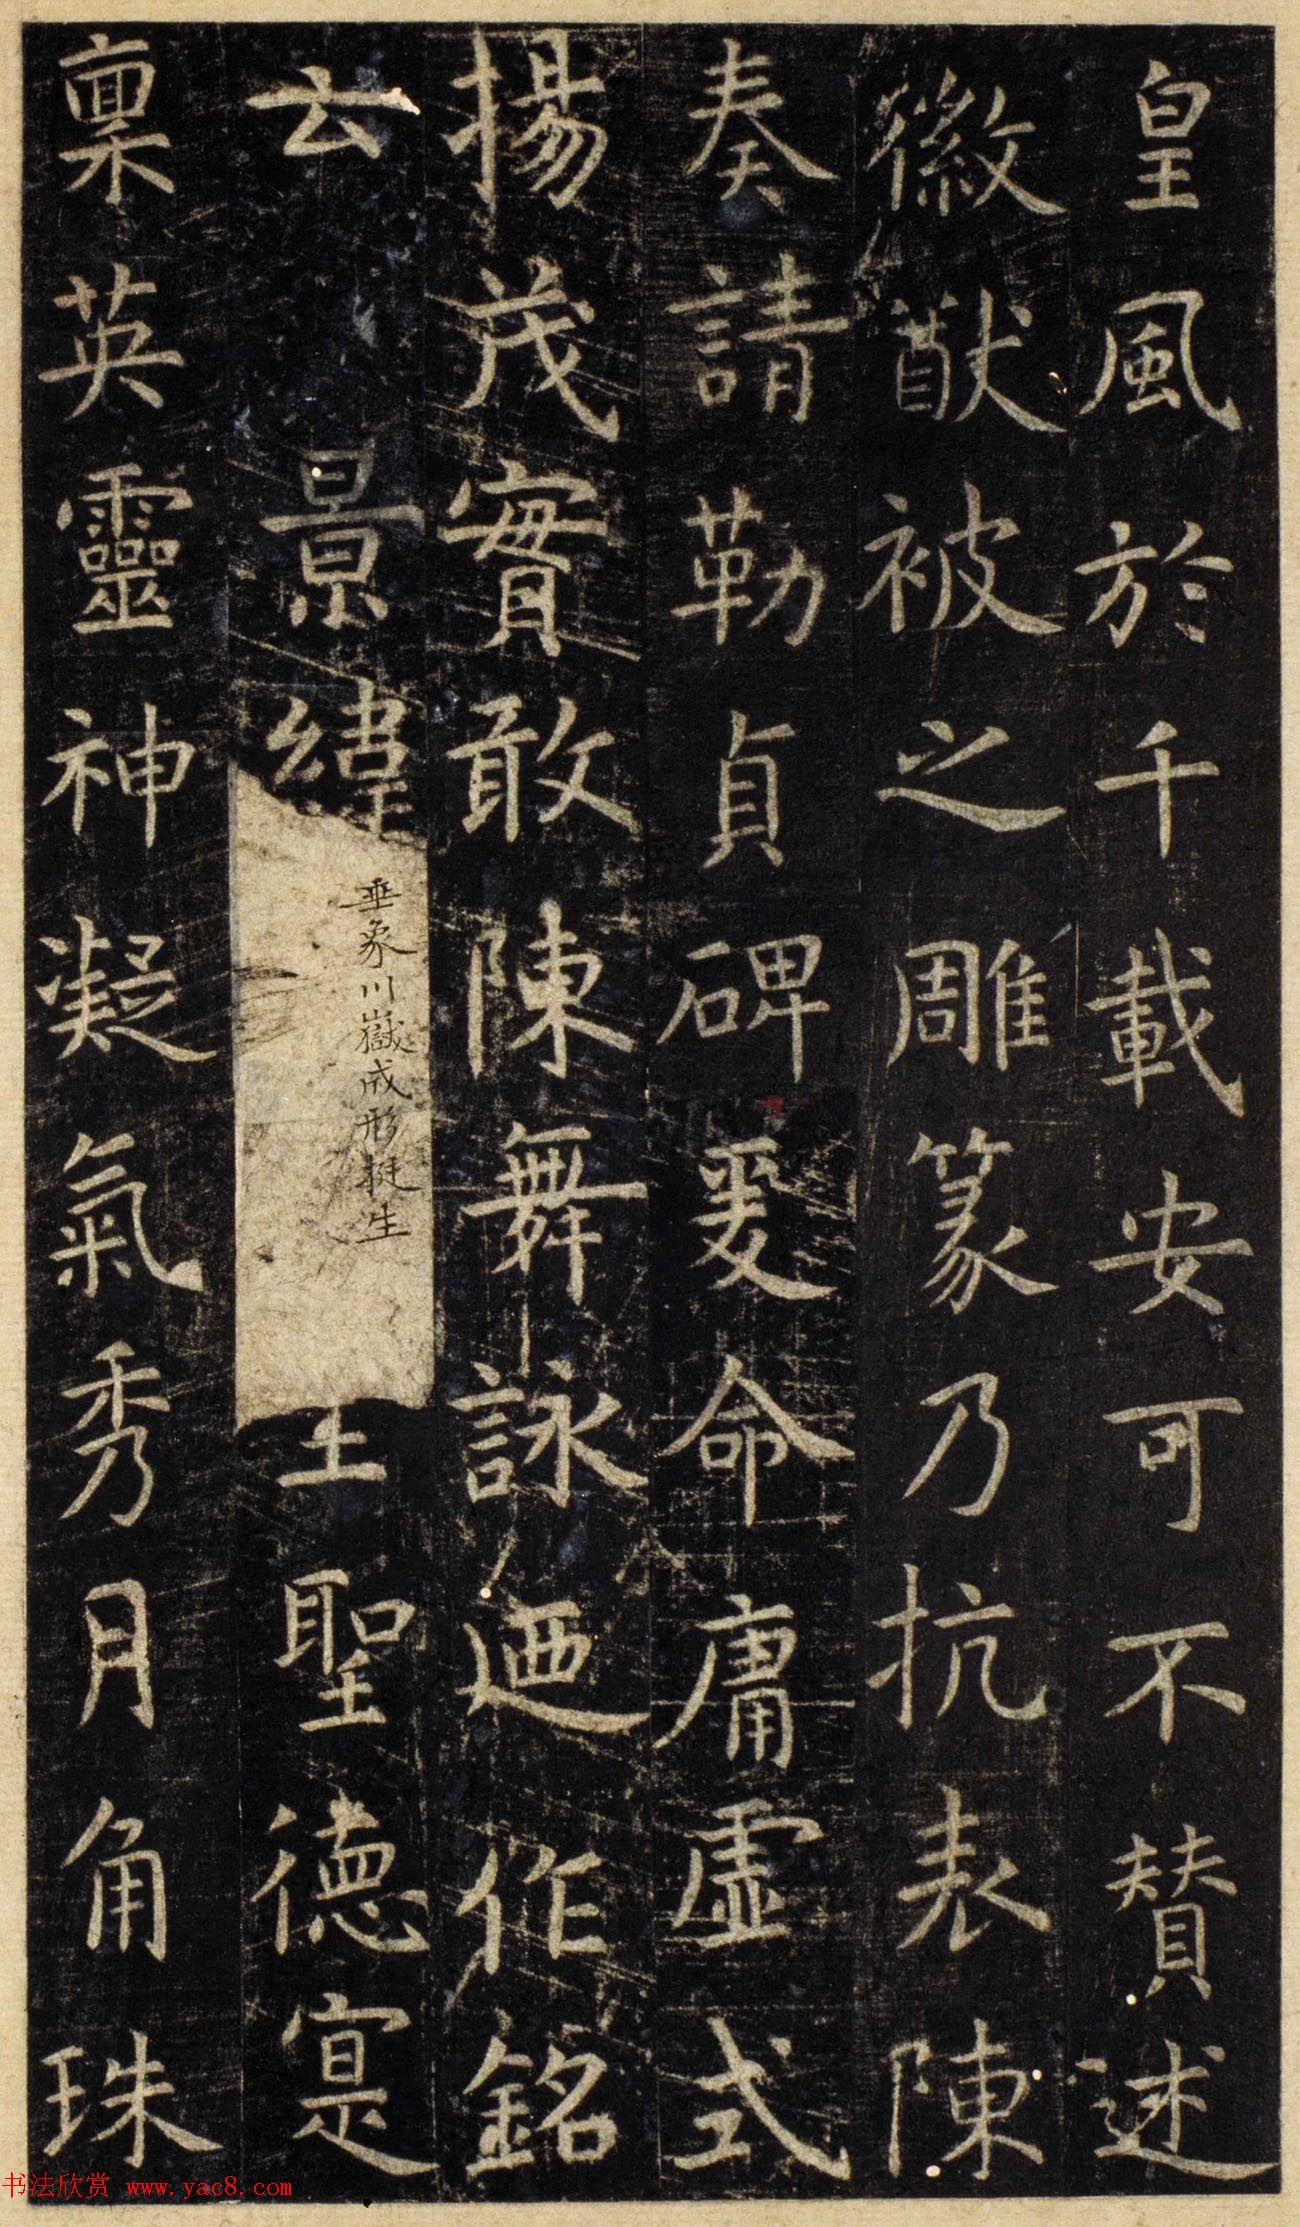 皇風於千載安可不贊述
徽猷被之雕篆乃抗表陳
奏請勒貞碑爰命庸虛式
揚茂實敢陳舞詠迺作銘
云景緯垂象川嶽成形挺生王聖德寔
稟英靈神凝氣秀月角珠
书法欣赏 www.yac8.com